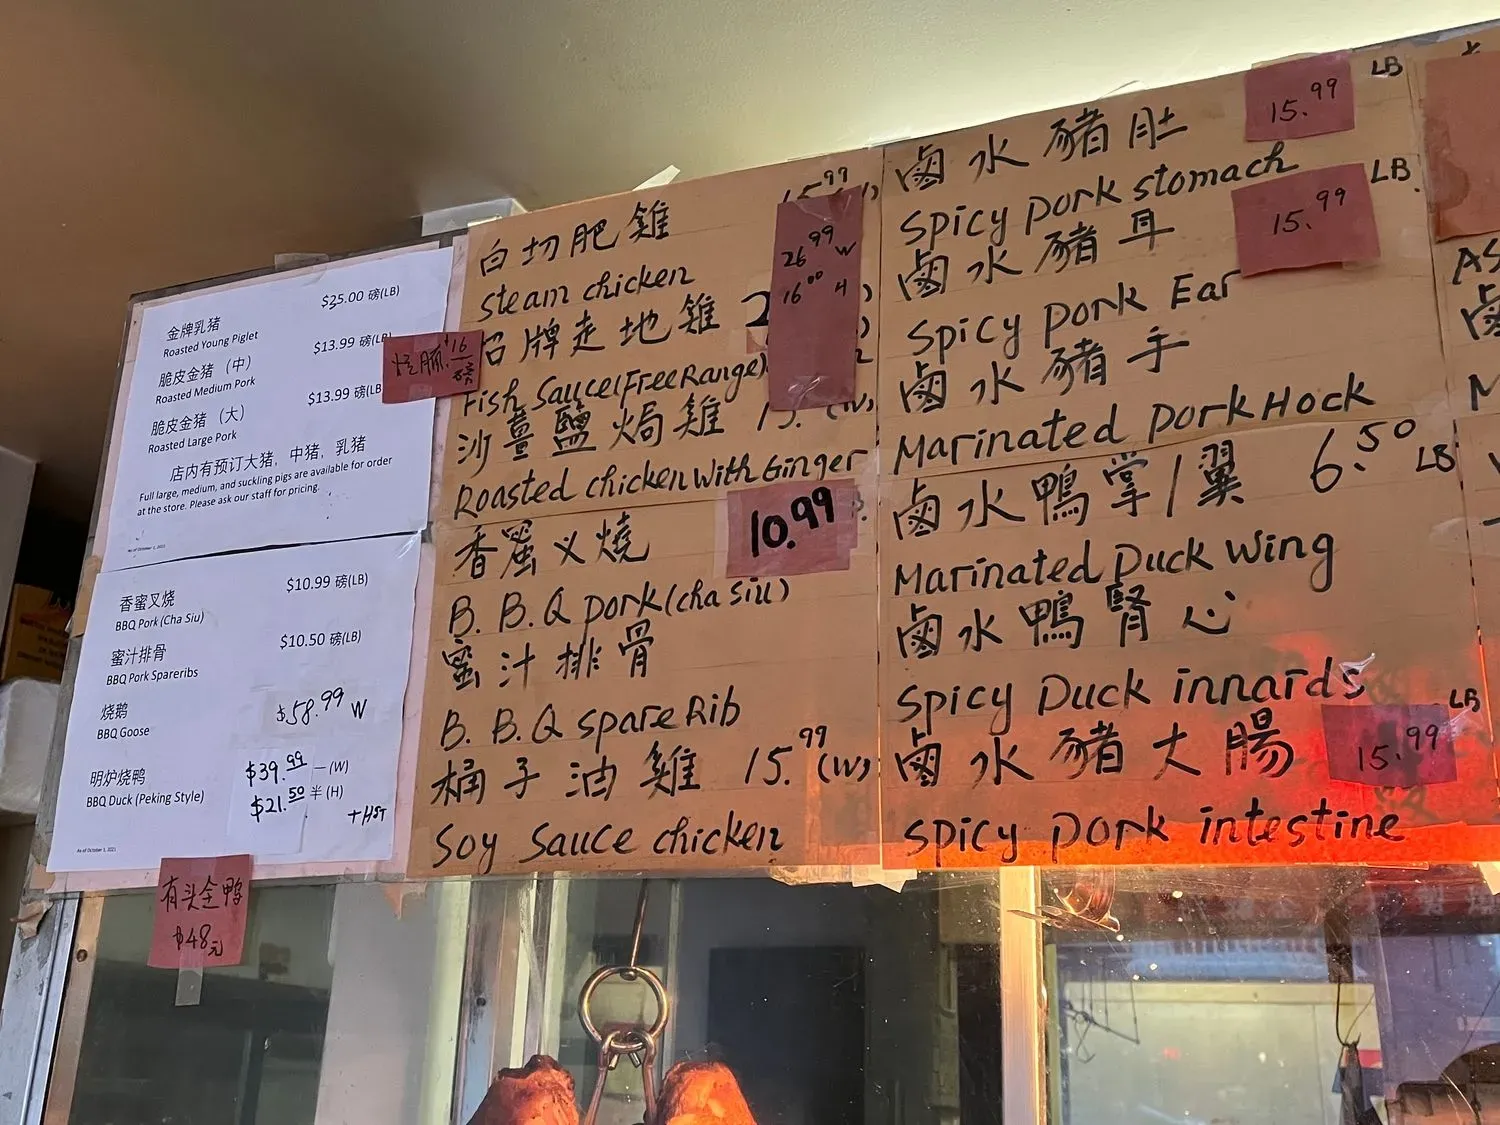 金牌乳猪 $25.00 磅(LB)
Roasted Young Piglet
脆皮金猪（中） $13.99 磅(LB)
Roasted Medium Pork
脆皮金猪（大） $13.99 磅(LB)
Roasted Large Pork
店内有预订大猪，中猪，乳猪
Full large, medium, and suckling pigs are available for order
at the store. Please ask our staff for pricing.
As of October 1, 2021
$16
磅
香蜜叉烧 $10.99 磅(LB)
BBQ Pork (Cha Siu)
蜜汁排骨 $10.50 磅(LB)
BBQ Pork Spareribs
烧鹅 $58.99 W
BBQ Goose
明炉烧鸭 $39.99 一(W)
BBQ Duck (Peking Style) $21.50 半(H)
+HST
As of October 1, 2021
有头全鸭
$48元
白切肥雞 15.99
steam chicken
26.99 W
16.00 H
招牌走地雞 2
Fish Sauce(Free Range)
沙薑鹽焗雞 15. (W)
Roasted chicken with Ginger
香蜜义燒 10.99
B. B. Q pork(cha siu)
蜜汁排骨
B. B. Q spare Rib
桶子油雞 15.99 (W)
Soy Sauce chicken
鹵水豬肚 15.99 LB
spicy pork stomach
鹵水豬耳 15.99 LB.
spicy pork Ear
鹵水豬手
Marinated pork Hock
鹵水鴨掌/翼 6.50 LB
Marinated Duck wing
鹵水鴨腎心
spicy Duck innards
鹵水豬大腸 15.99 LB
spicy pork intestine